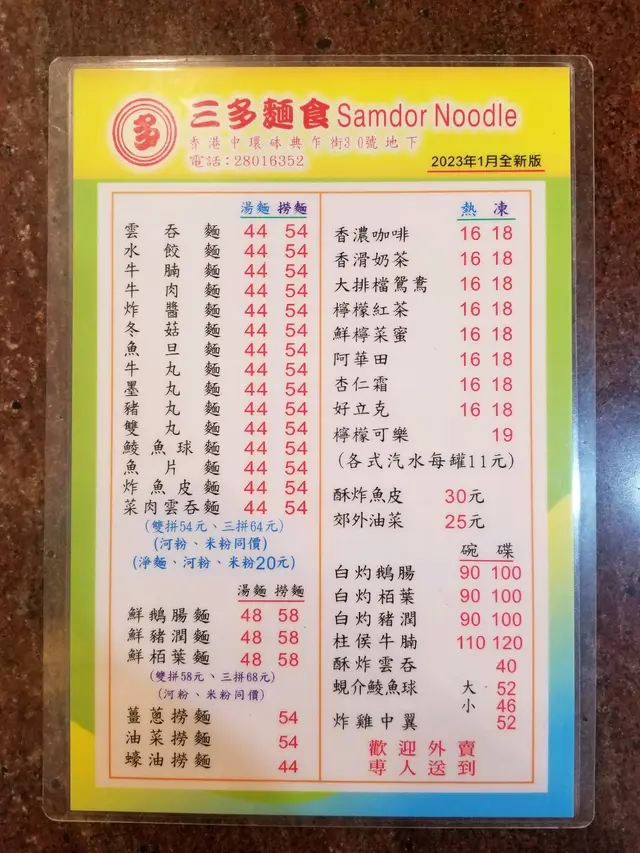 多 三多麵食 Samdor Noodle
香港中環砵典乍街30號地下
電話:28016352
2023年1月全新版
湯麵 撈麵
雲吞麵 44 54
水餃麵 44 54
牛腩麵 44 54
牛肉麵 44 54
炸醬麵 44 54
冬菇麵 44 54
魚旦麵 44 54
牛丸麵 44 54
墨丸麵 44 54
豬丸麵 44 54
雙丸麵 44 54
鯪魚球麵 44 54
魚片麵 44 54
炸魚皮麵 44 54
菜肉雲吞麵 44 54
(雙拼54元、三拼64元)
(河粉、米粉同價)
(淨麵、河粉、米粉20元)
湯麵 撈麵
鮮鵝腸麵 48 58
鮮豬潤麵 48 58
鮮栢葉麵 48 58
(雙拼58元、三拼68元)
(河粉、米粉同價)
薑蔥撈麵 54
油菜撈麵 54
蠔油撈麵 44
熱 凍
香濃咖啡 16 18
香滑奶茶 16 18
大排檔鴛鴦 16 18
檸檬紅茶 16 18
鮮檸菜蜜 16 18
阿華田 16 18
杏仁霜 16 18
好立克 16 18
檸檬可樂 19
(各式汽水每罐11元)
酥炸魚皮 30元
郊外油菜 25元
碗 碟
白灼鵝腸 90 100
白灼栢葉 90 100
白灼豬潤 90 100
柱侯牛腩 110 120
酥炸雲吞 40
蜆介鯪魚球 大 52
小 46
炸雞中翼 52
歡迎外賣
專人送到